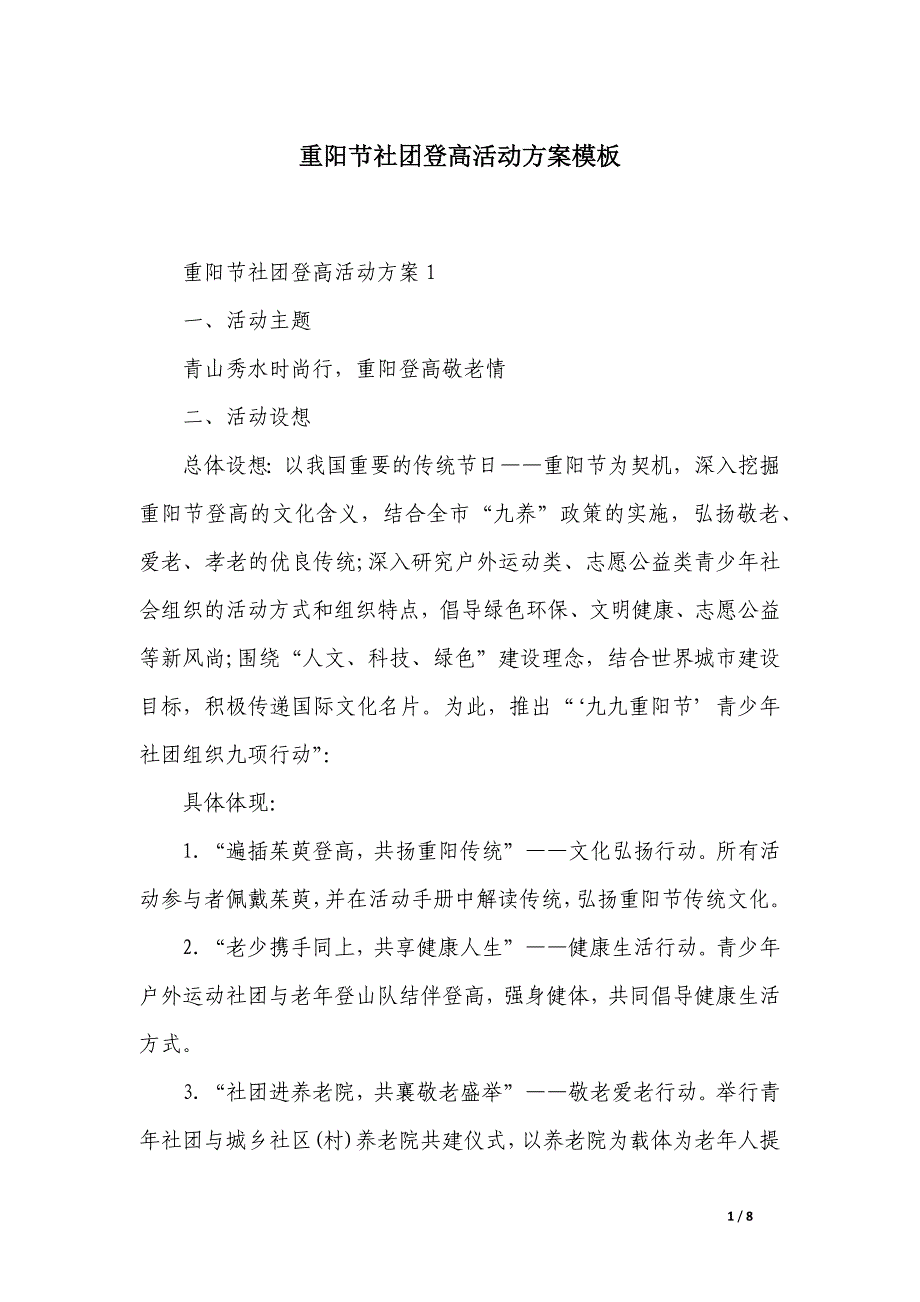 重阳节社团登高活动方案模板
重阳节社团登高活动方案1
一、活动主题
青山秀水时尚行，重阳登高敬老情
二、活动设想
总体设想：以我国重要的传统节日——重阳节为契机，深入挖掘
重阳节登高的文化含义，结合全市“九养”政策的实施，弘扬敬老、
爱老、孝老的优良传统;深入研究户外运动类、志愿公益类青少年社
会组织的活动方式和组织特点，倡导绿色环保、文明健康、志愿公益
等新风尚;围绕“人文、科技、绿色”建设理念，结合世界城市建设
目标，积极传递国际文化名片。为此，推出“‘九九重阳节’青少年
社团组织九项行动”：
具体体现：
1. “遍插茱萸登高，共扬重阳传统”——文化弘扬行动。所有活
动参与者佩戴茱萸，并在活动手册中解读传统，弘扬重阳节传统文化。
2. “老少携手同上，共享健康人生”——健康生活行动。青少年
户外运动社团与老年登山队结伴登高，强身健体，共同倡导健康生活
方式。
3. “社团进养老院，共襄敬老盛举”——敬老爱老行动。举行青
年社团与城乡社区(村)养老院共建仪式，以养老院为载体为老年人提
1 / 8